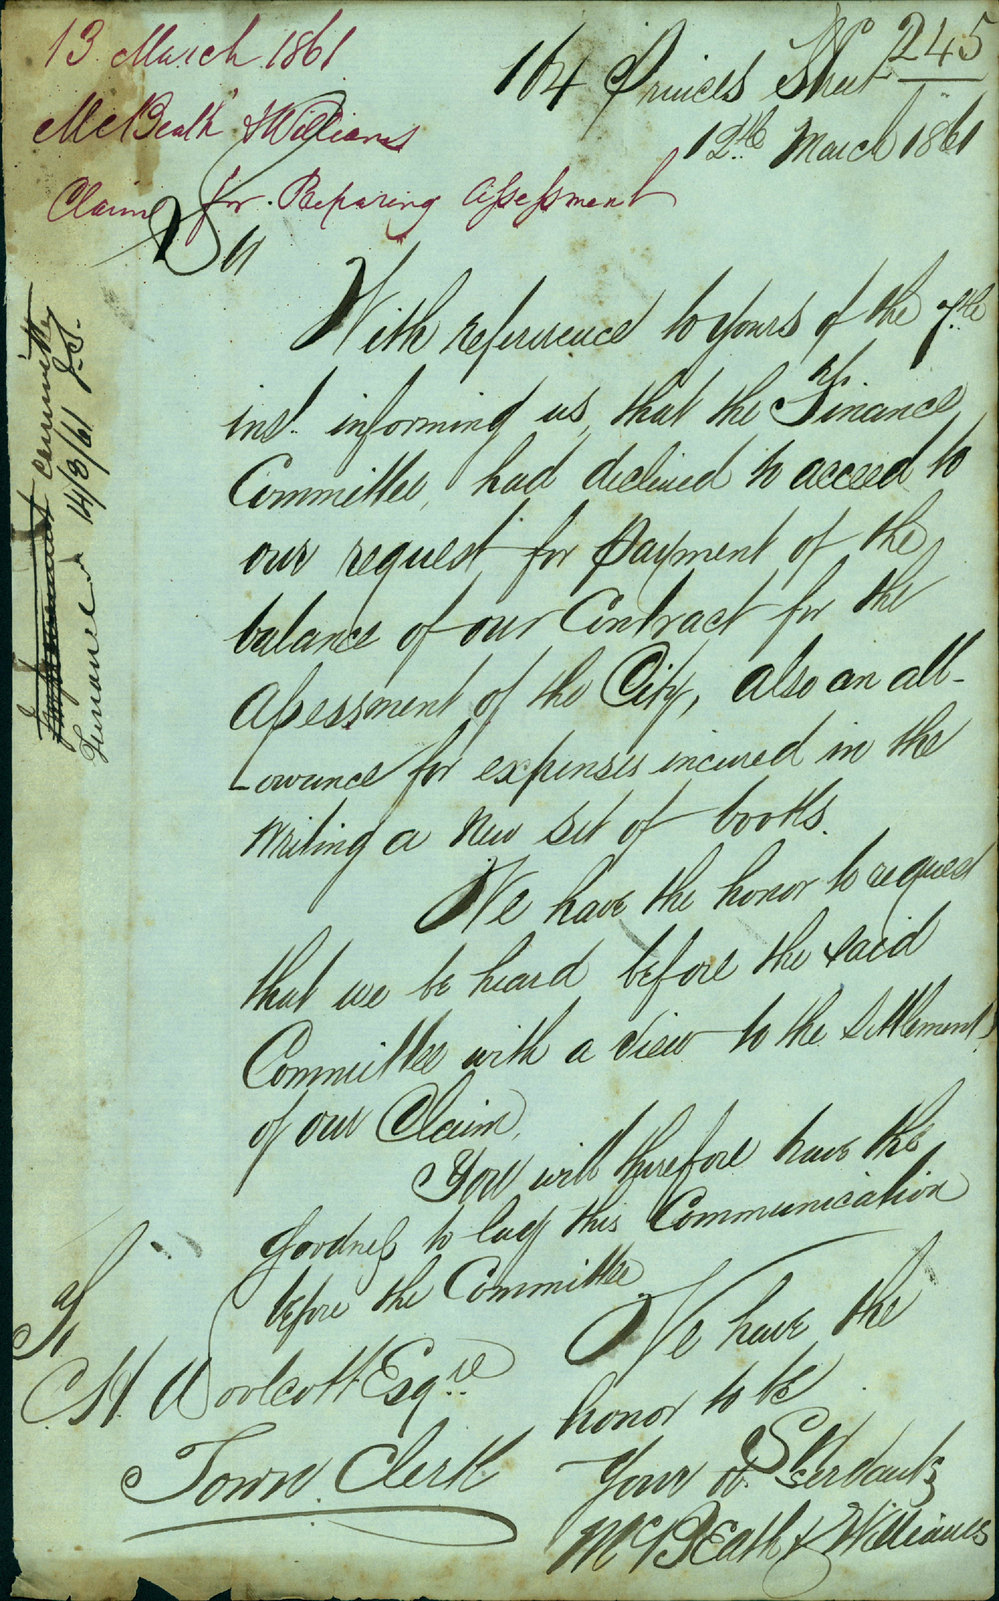 245
13 March 1861
McBeath & Williams
Claim for Preparing Assessment
164 Princes Street
12th March 1861
Sir
With reference to yours of the 7th
inst. informing us, that the Finance
Committee, had declined to acceed to
our request for payment of the
balance of our Contract for the
Assessment of the City, also an all-
-owance for expenses incured in the
writing a new set of books.
We have the honor to request
that we be heard before the said
Committee with a view to the settlement
of our Claim.
You will therefore have the
goodness to lay this Communication
before the Committee
We have the
honor to be
Your ob. Servants
McBEath & Williams
To
H. Woolcott Esqre
Town Clerk
Committee
Finance 14/3/61